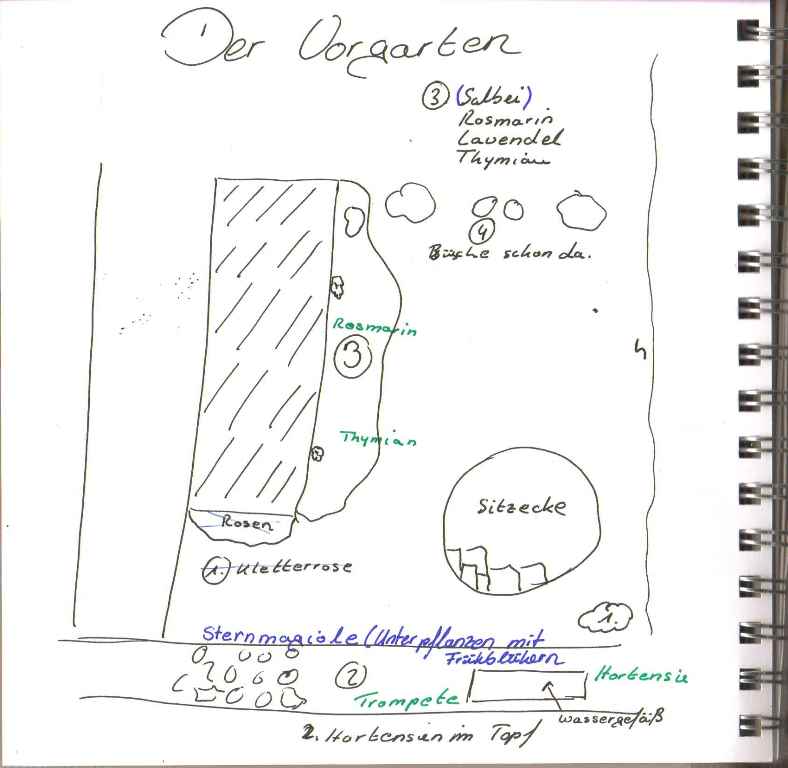 Der Vorgarten
③ (Salbei)
Rosmarin
Lavendel
Thymian
④
Büsche schon da.
Rosmarin
③
Thymian
Sitzecke
Rosen
①. Kletterrose
1.
Sternmagiole (Unterpflanzen mit
Frühblühern
②
Hortensie
Trompete
Wassergefäß
2. Hortensien im Topf